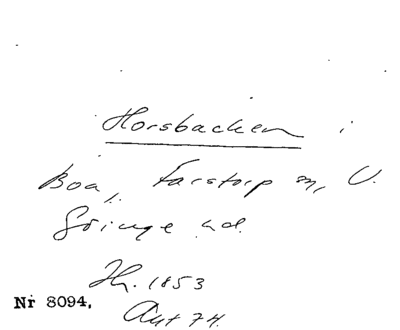 Horsbacken i
Boa, Farstorp sn, V.
Göinge hd.
Hr. 1853
Nr 8094.
Ant 74.